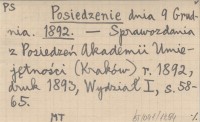 PS
Posiedzenie dnia 9 Grud-
nia. 1892. — Sprawozdania
z Posiedzeń Akademii Umie-
jętności (Kraków) r. 1892,
druk 1893, Wydział I, s. 58-
65.
MT